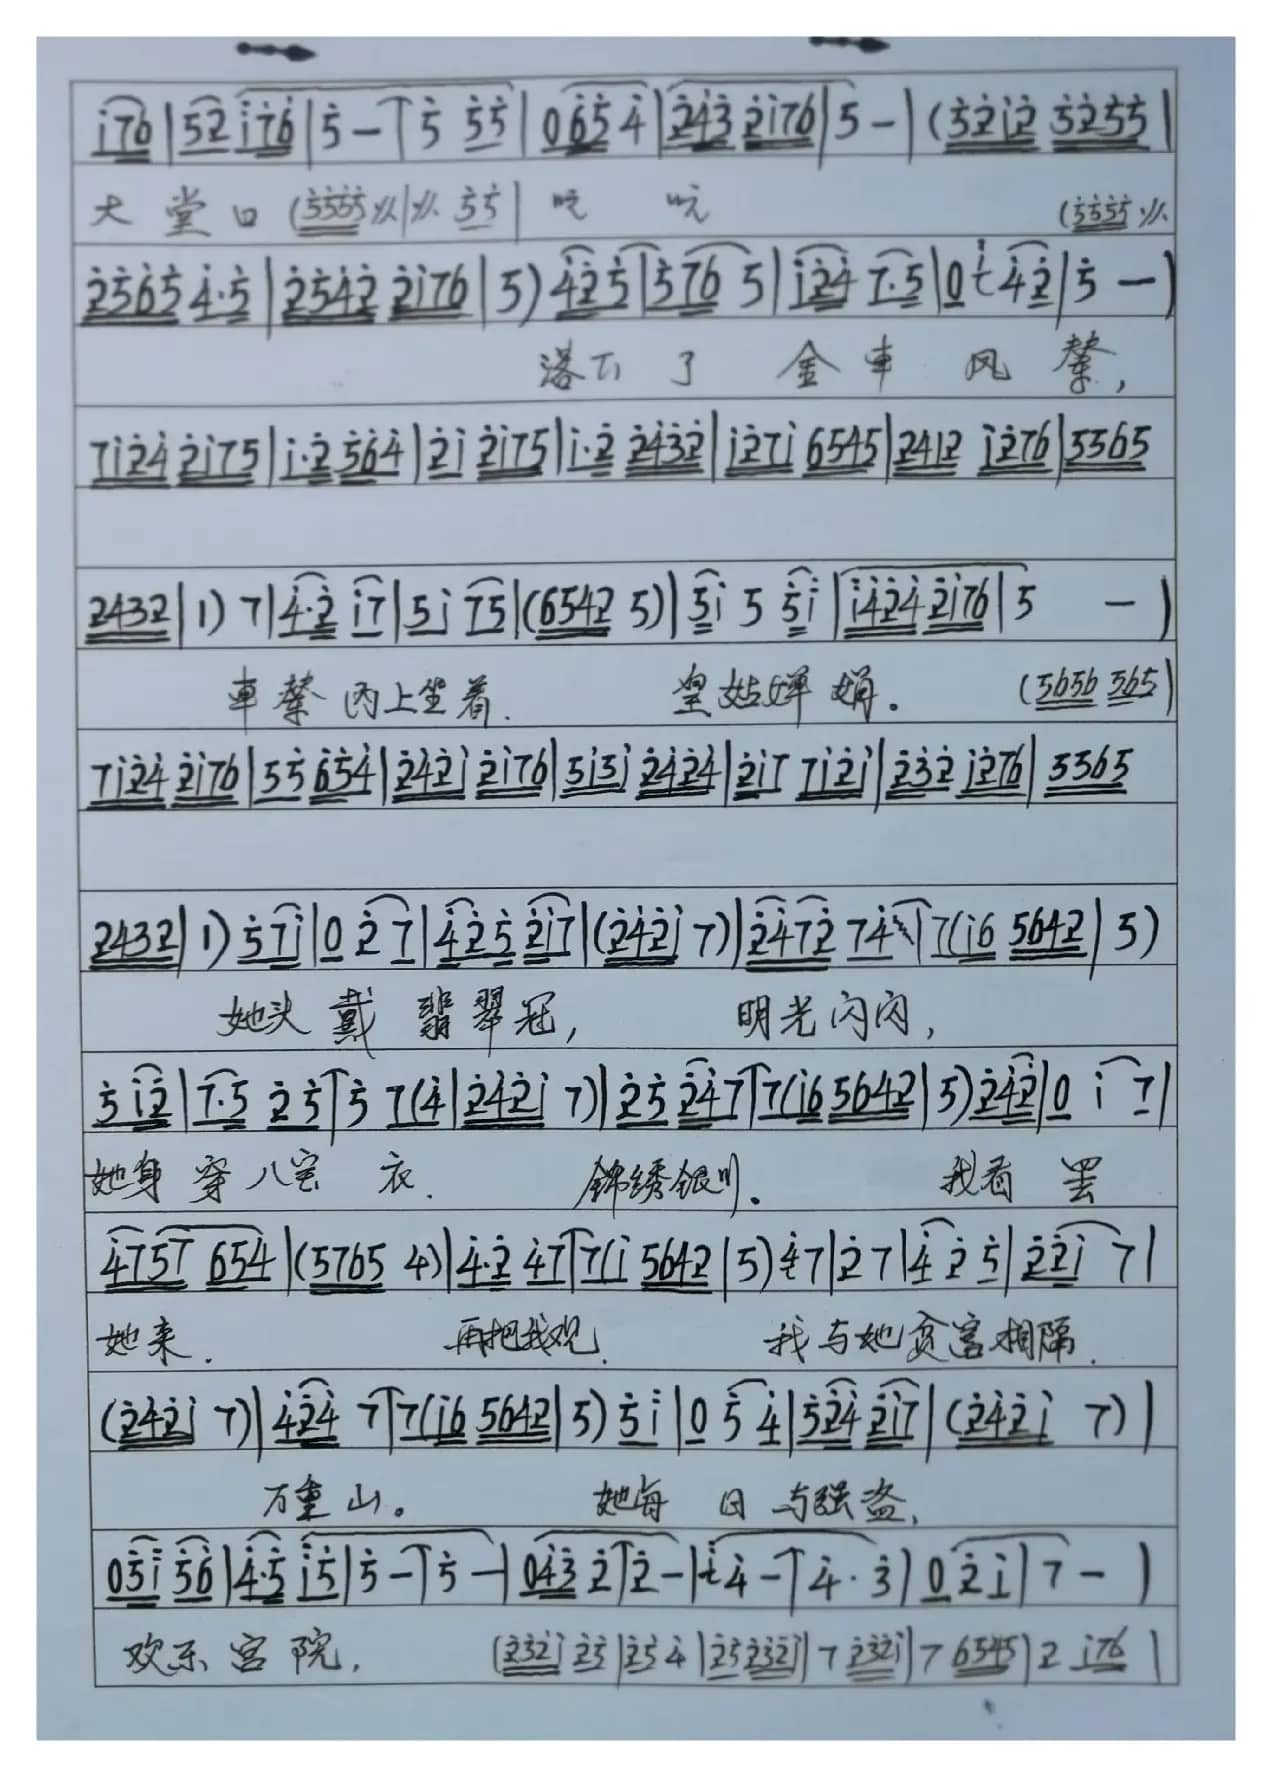 i76|52 i76|5-|5 55|0 65 4|243 2i76|5-|(52i2 5255|
大堂口(5555 〃|〃 55| 吭 吭 (5555 〃
2565 4·5|2542 2i76|5) 425|576 5|i24 7·5|0 i 42|5 -)
落下了 金車 凤輦,
7i24 2i75|i·2 564|2i 2i75|i·2 2432|i27i 6545|2412 i276|5565
2432|1) 7|4·2 i7|5i 75|(6542 5)|5i 5 5i|i424 2i76|5 -)
車輦内上坐着. 皇姑婵娟。 (5656 565)
7i24 2i76|55 654|242i 2i76|5i5i 2424|2i7 7i2i|232 i276|5565
2432|1) 5 7i|0 2 7|425 2i7|(242i 7)|2472 74|7(i6 5642|5)
她头戴翡翠冠, 明光闪闪,
5 i2|7·5 25|5 7(4|242i 7)|25 247|7(i6 5642|5) 242|0 i 7|
她身穿八宝衣. 锦绣银川。 我看罢
4757 654|(5765 4)|4·2 47|7(i 5642|5) 47|2 7|4 2 5|22i 7|
她来. 再把我观. 我与她贫富相隔.
(242i 7)|424 7|7(i6 5642|5) 5i|0 5 4|524 2i7|(242i 7)|
万重山。 她每日与强盗,
05i 56|4·5 i5|5-|5-|043 2|2-|4-|4·3|0 2i|7-|
欢乐宫院, (232i 25|25 4|25 232i|7 232i|7 6545|2 i76|